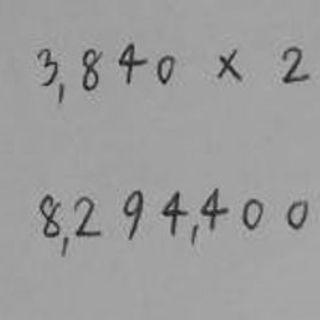 3,840 x 2
8,294,400